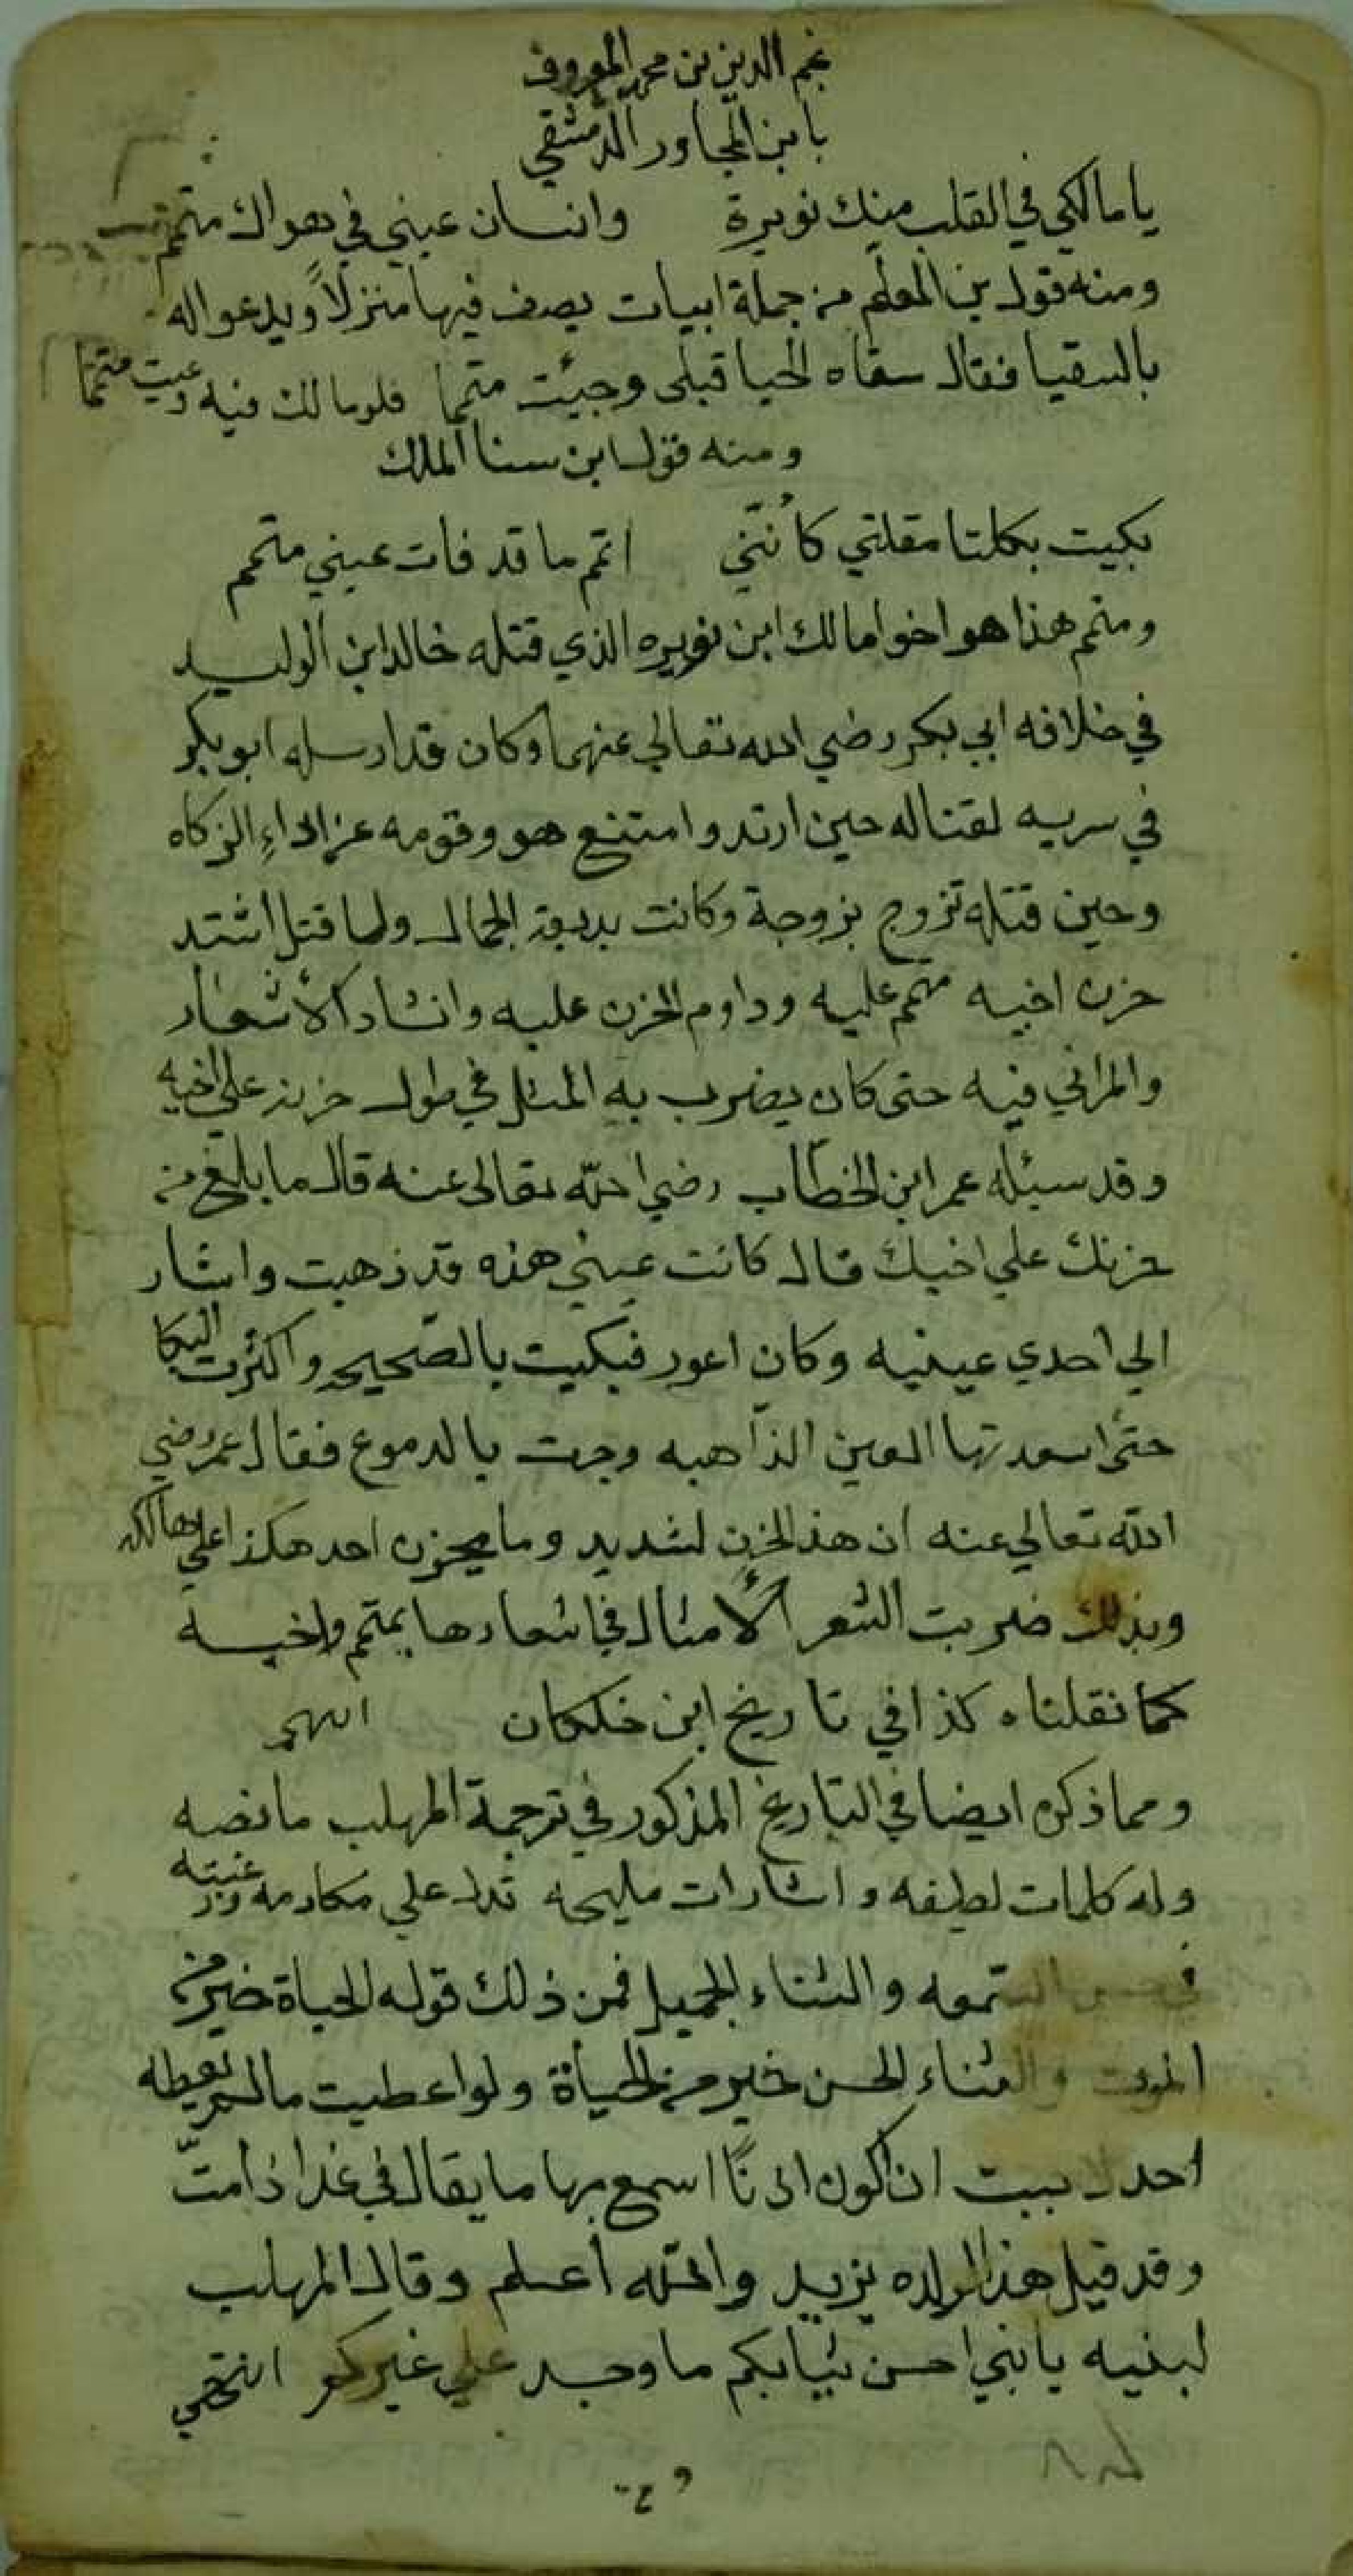 نجم الدين بن محمد المعروف
بابن المجاور الدمشقي
يا مالكي في القلب منك نويرة وانسان عيني في هواك متمم
ومنه قول بن المعلم من جملة ابيات يصف فيها منزلاً ويدعوا له
بالسقيا فقال سقاه الحيا قبلى وجيئت متمما فلو مالك فيه دعيت متمما
ومنه قول ابن سنا الملك
بكيت بكلتا مقلتي كأننّي اتم ما قد فات عيني متمم
ومتمم هذا هو اخوا مالك ابن نويره الذي قتله خالد ابن الوليد
في خلافه ابي بكر رضي الله تعالى عنهما وكان قد ارسله ابو بكر
في سريه لقتاله حين ارتد وامتنع هو وقومه عن اداءِ الزكاه
وحين قتله تزوج بزوجة وكانت بديعة الجمال ولما قتل اشتد
حزن اخيه متمم عليه وداوم الحزن عليه وانشاد الأشعار
والمراثي فيه حتى كان يضرب به المثل في طول حزنه على اخيه
وقد سيئله عمر ابن الخطاب رضي الله تعالى عنه قال ما بلغ من
حزنك علي اخيك قال كانت عيني هذه قد ذهبت واشار
الي احدي عينيه وكان اعور فبكيت بالصّحيحه واكثرت البكا
حتى اسعدتها العين الذّاهبه وجرت بالدموع فقال عمر رضي
الله تعالي عنه ان هذ الحزن لشديد وما يحزن احد هكذا علي هالكه
وبذلك ضربت الشعر الأمثال في اشعارها بمتمم واخيه
كما نقلناه كذا في تاريخ ابن خلكان انتهى
ومما ذكر ايضا في التاريخ المذكور في ترجمة المهلب ما نصه
وله كلمات لطيفه واشارات مليحه تدل علي مكارمه ورغبته
في حسن السمعه والثناء الجميل فمن ذلك قوله الحياة خير من
الموت والثناء الحسن خير من الحياة ولو اعطيت ما لم يعطه
احد لاببت ان اكون اذنًا اسمع بها ما يقال في غدا اذا متّ
وقد قيل هذ الولده يزيد والله أعلم وقال المهلب
لبنيه يا بني احسن ثيابكم ما وجد علي غيركم انتهي